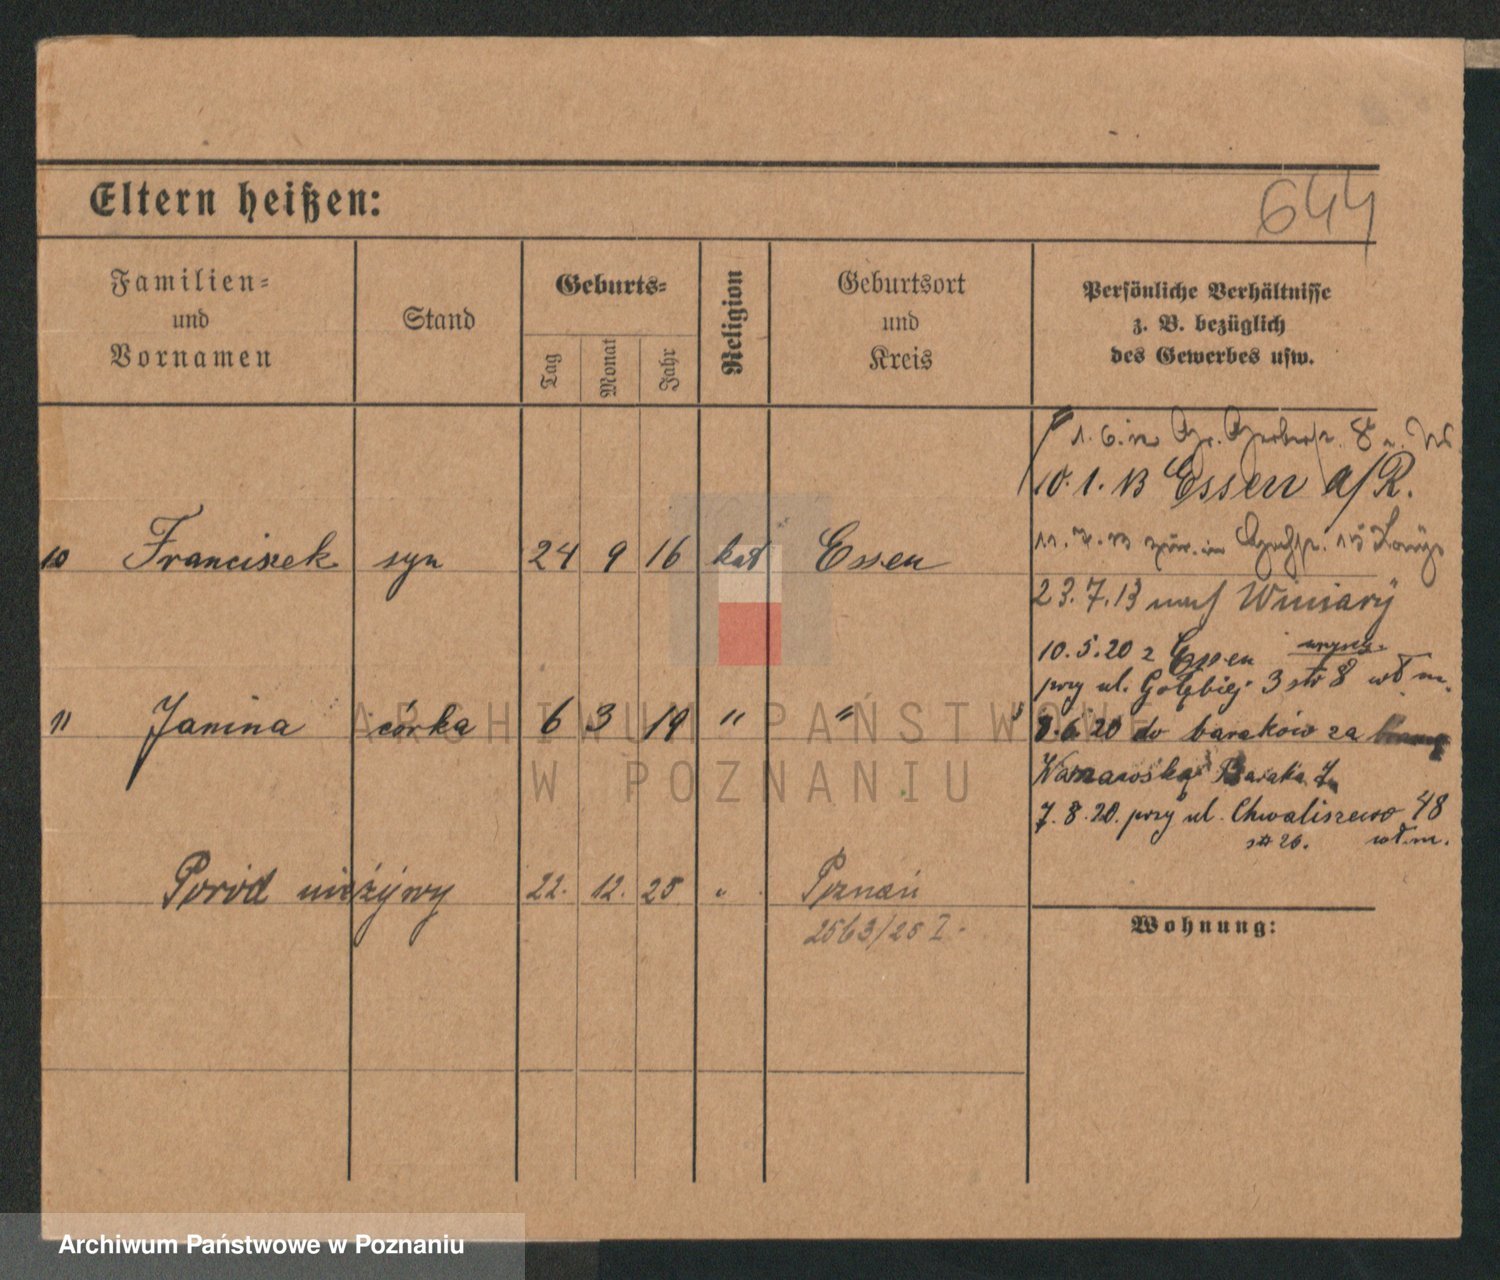 644
Eltern heißen:
Familien-
und
Vornamen
Stand
Geburts-
Tag
Monat
Jahr
Religion
Geburtsort
und
Kreis
Persönliche Verhältnisse
z. B. bezüglich
des Gewerbes usw.
1. 6. 12
10. 1. 13 Essen a/R.
10 Franciszek syn 24 9 16 kat Essen
23. 7. 13 nach Winiary
10. 5. 20 z Essen
przy ul. Gołębiej 3 str 8 wł m.
11 Janina córka 6 3 19 " "
8. 6 20 do baraków za
Warszawską Baraka
7. 8. 20. przy ul. Chwaliszewo 48
str 26. wł. m.
Poród nieżywy 22. 12. 25 " Poznań
2563/25 I.
Wohnung:
ARCHIWUM PAŃSTWOWE
W POZNANIU
Archiwum Państwowe w Poznaniu